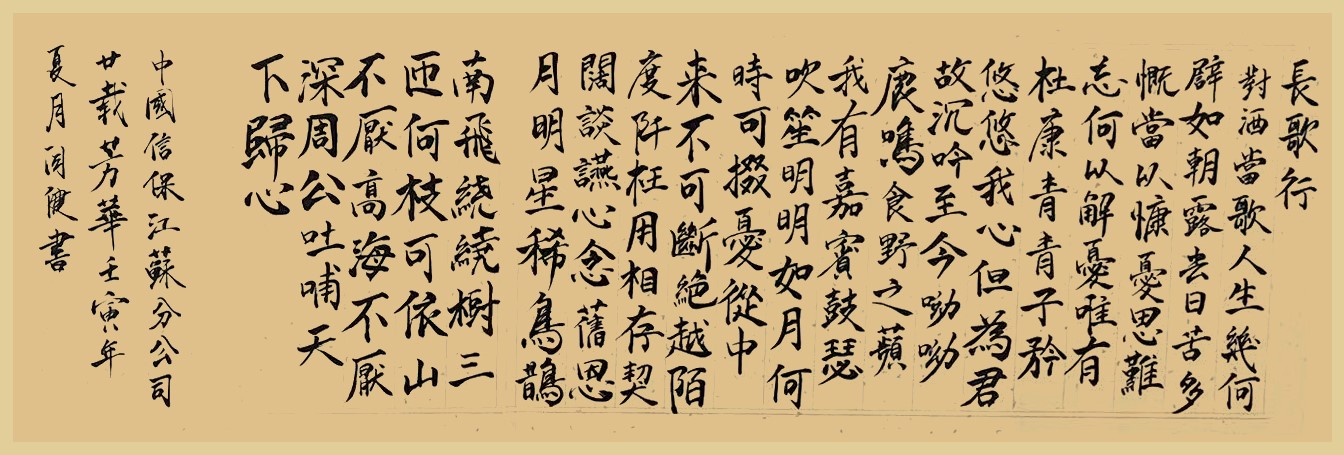 長歌行
對酒當歌人生幾何
辟如朝露去日苦多
慨當以慷憂思難
忘何以解憂唯有
杜康青青子矜
悠悠我心但為君
故沉吟至今呦呦
鹿鳴食野之蘋
我有嘉賓鼓瑟
吹笙明明如月何
時可掇憂從中
来不可斷絕越陌
度阡枉用相存契
闊談讌心念舊恩
月明星稀烏鵲
南飛繞繞樹三
匝何枝可依山
不厭高海不厭
深周公吐哺天
下歸心
中國信保江蘇分公司
廿載芳華壬寅年
夏月周健書